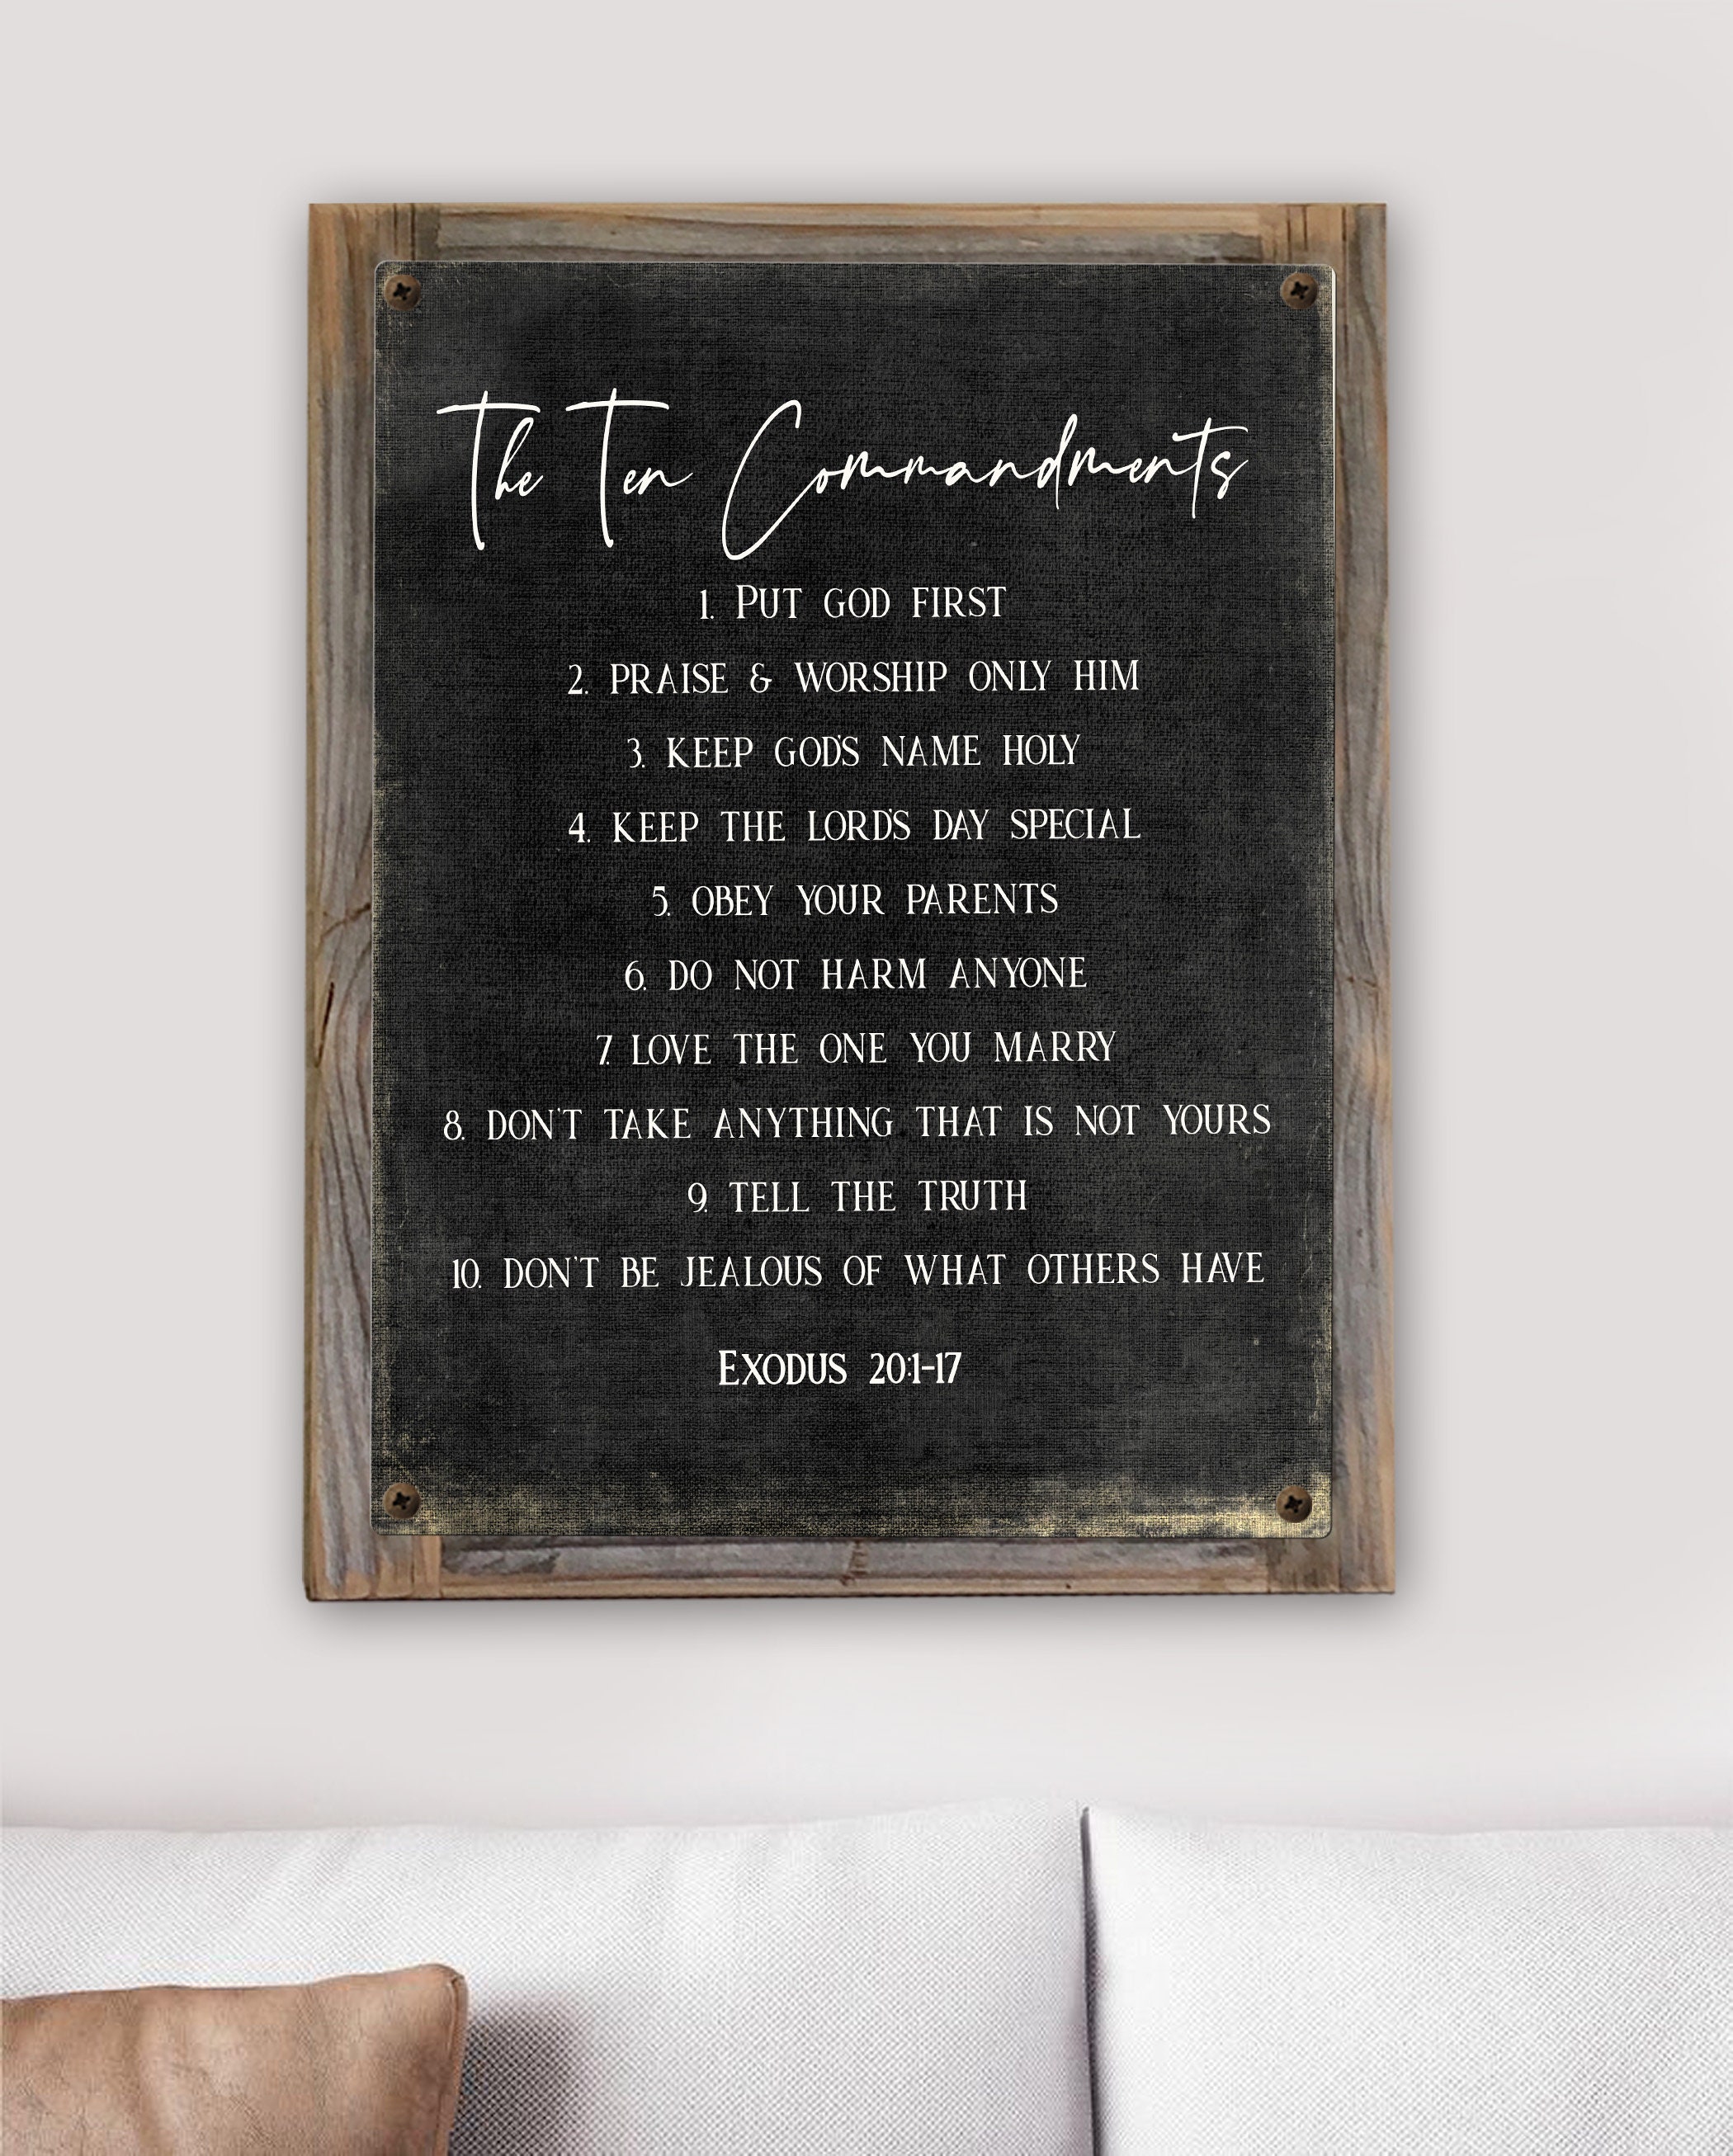 The Ten Commandments
1. PUT GOD FIRST
2. PRAISE & WORSHIP ONLY HIM
3. KEEP GOD'S NAME HOLY
4. KEEP THE LORD'S DAY SPECIAL
5. OBEY YOUR PARENTS
6. DO NOT HARM ANYONE
7. LOVE THE ONE YOU MARRY
8. DON'T TAKE ANYTHING THAT IS NOT YOURS
9. TELL THE TRUTH
10. DON'T BE JEALOUS OF WHAT OTHERS HAVE
EXODUS 20:1-17